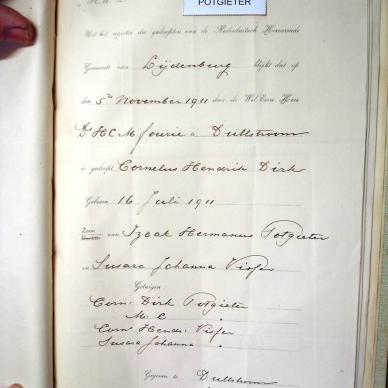 POTGIETER
Uit het register der gedoopten van de Nederduitsch Hervormde
Gemeente van Lijdenburg blijkt dat op
den 5de November 1911 door de Wel Eerw. Heer
Ds H C M Fourie a Dullstroom
is gedoopt Cornelus Hendrik Dirk
Geboren 16 Juli 1911
Zoon
Dochter van Izaak Hermanus Potgieter
en Susara Johanna Visser
Getuigen
Corn: Dirk Potgieter
M: C "
Corn Hendr: Visser
Susara Johanna "
Gegeven te Dullstroom